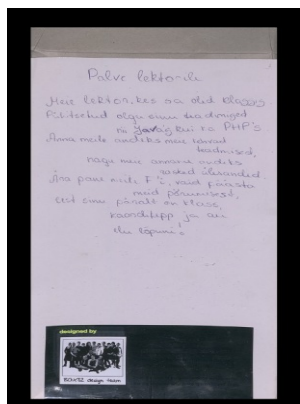 Palve lektorile
Meie lektor, kes sa oled klassis
Pühitsetud olgu sinu teadmised
nii Java's kui ka PHP's
Anna meile andeks meie
teadmised,
nagu meie anname andeks
ülesanded.
Ära pane meile F'i, vaid päästa
meid põrumisest,
sest sinu päralt on klass,
koordtepp ja au
elu lõpuni!
designed by
BOXS2 design team